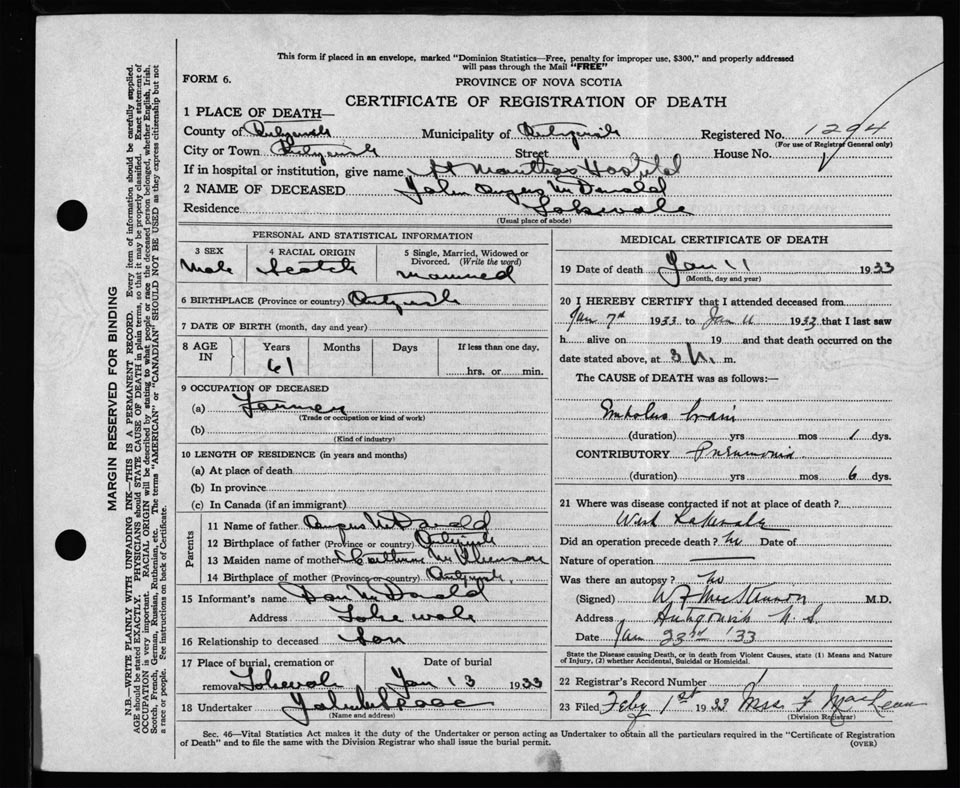 This form if placed in an envelope, marked "Dominion Statistics—Free, penalty for improper use, $300," and properly addressed
will pass through the Mail "FREE"
FORM 6.
PROVINCE OF NOVA SCOTIA
CERTIFICATE OF REGISTRATION OF DEATH
1 PLACE OF DEATH—
County of Antigonish Municipality of Antigonish Registered No. 1294
(For use of Registrar General only)
City or Town Antigonish Street House No.
If in hospital or institution, give name St Marthas Hospital
2 NAME OF DECEASED John Angus McDonald
Residence Lakevale
(Usual place of abode)
PERSONAL AND STATISTICAL INFORMATION
3 SEX Male
4 RACIAL ORIGIN Scotch
5 Single, Married, Widowed or Divorced. (Write the word) Married
6 BIRTHPLACE (Province or country) Antigonish
7 DATE OF BIRTH (month, day and year)
8 AGE IN Years Months Days If less than one day,
61 hrs. or min.
9 OCCUPATION OF DECEASED
(a) Farmer
(Trade or occupation or kind of work)
(b)
(Kind of industry)
10 LENGTH OF RESIDENCE (in years and months)
(a) At place of death
(b) In province
(c) In Canada (if an immigrant)
Parents
11 Name of father Angus McDonald
12 Birthplace of father (Province or country) Antigonish
13 Maiden name of mother Catherine McPherson
14 Birthplace of mother (Province or country) Antigonish
15 Informant's name Dan McDonald
Address Lakevale
16 Relationship to deceased Son
17 Place of burial, cremation or removal Lakevale
Date of burial Jan 13 1933
18 Undertaker John
(Name and address)
MEDICAL CERTIFICATE OF DEATH
19 Date of death Jan 11 1933
(Month, day and year)
20 I HEREBY CERTIFY that I attended deceased from
Jan 7th 1933 to Jan 11 1933 that I last saw
h alive on 19 and that death occurred on the
date stated above, at 3 m.
The CAUSE of DEATH was as follows:—
Embolus brain
(duration) yrs mos 1 dys.
CONTRIBUTORY Pneumonia
(duration) yrs mos 6 dys.
21 Where was disease contracted if not at place of death?
Lakevale
Did an operation precede death? no Date of
Nature of operation —
Was there an autopsy? no
(Signed) W F MacKinnon M.D.
Address Antigonish N. S.
Date Jan 23rd '33
State the Disease causing Death, or in death from Violent Causes, state (1) Means and Nature
of Injury, (2) whether Accidental, Suicidal or Homicidal.
22 Registrar's Record Number 1
23 Filed Feby 1st 1933 Mrs F MacLean
(Division Registrar)
Sec. 46—Vital Statistics Act makes it the duty of the Undertaker or person acting as Undertaker to obtain all the particulars required in the "Certificate of Registration
of Death" and to file the same with the Division Registrar who shall issue the burial permit.
(OVER)
MARGIN RESERVED FOR BINDING
N.B.—WRITE PLAINLY WITH UNFADING INK—THIS IS A PERMANENT RECORD. Every item of information should be carefully supplied.
AGE should be stated EXACTLY. PHYSICIANS should STATE CAUSE OF DEATH in plain terms, so that it may be properly classified. Exact statement of
OCCUPATION is very important. RACIAL ORIGIN will be described by stating to what people or race the deceased person belonged, whether English, Irish,
Scotch, French, German, Russian, Ruthenian, etc. The terms "AMERICAN" or "CANADIAN" SHOULD NOT BE USED as they express citizenship but not
a race or people. See instructions on back of Certificate.